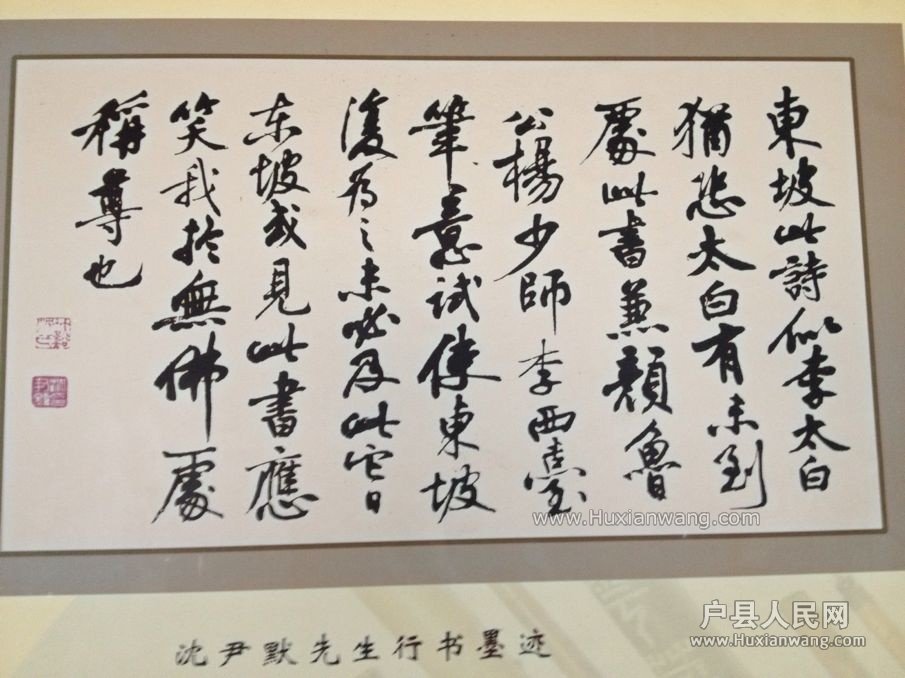 東坡此詩似李太白
猶恐太白有未到
處此書兼顏魯
公楊少師李西臺
筆意試使東坡
復為之未必及此它日
東坡或見此書應
笑我於無佛處
稱尊也
www.Huxianwang.com
沈尹默先生行书墨迹
户县人民网
www.Huxianwang.com